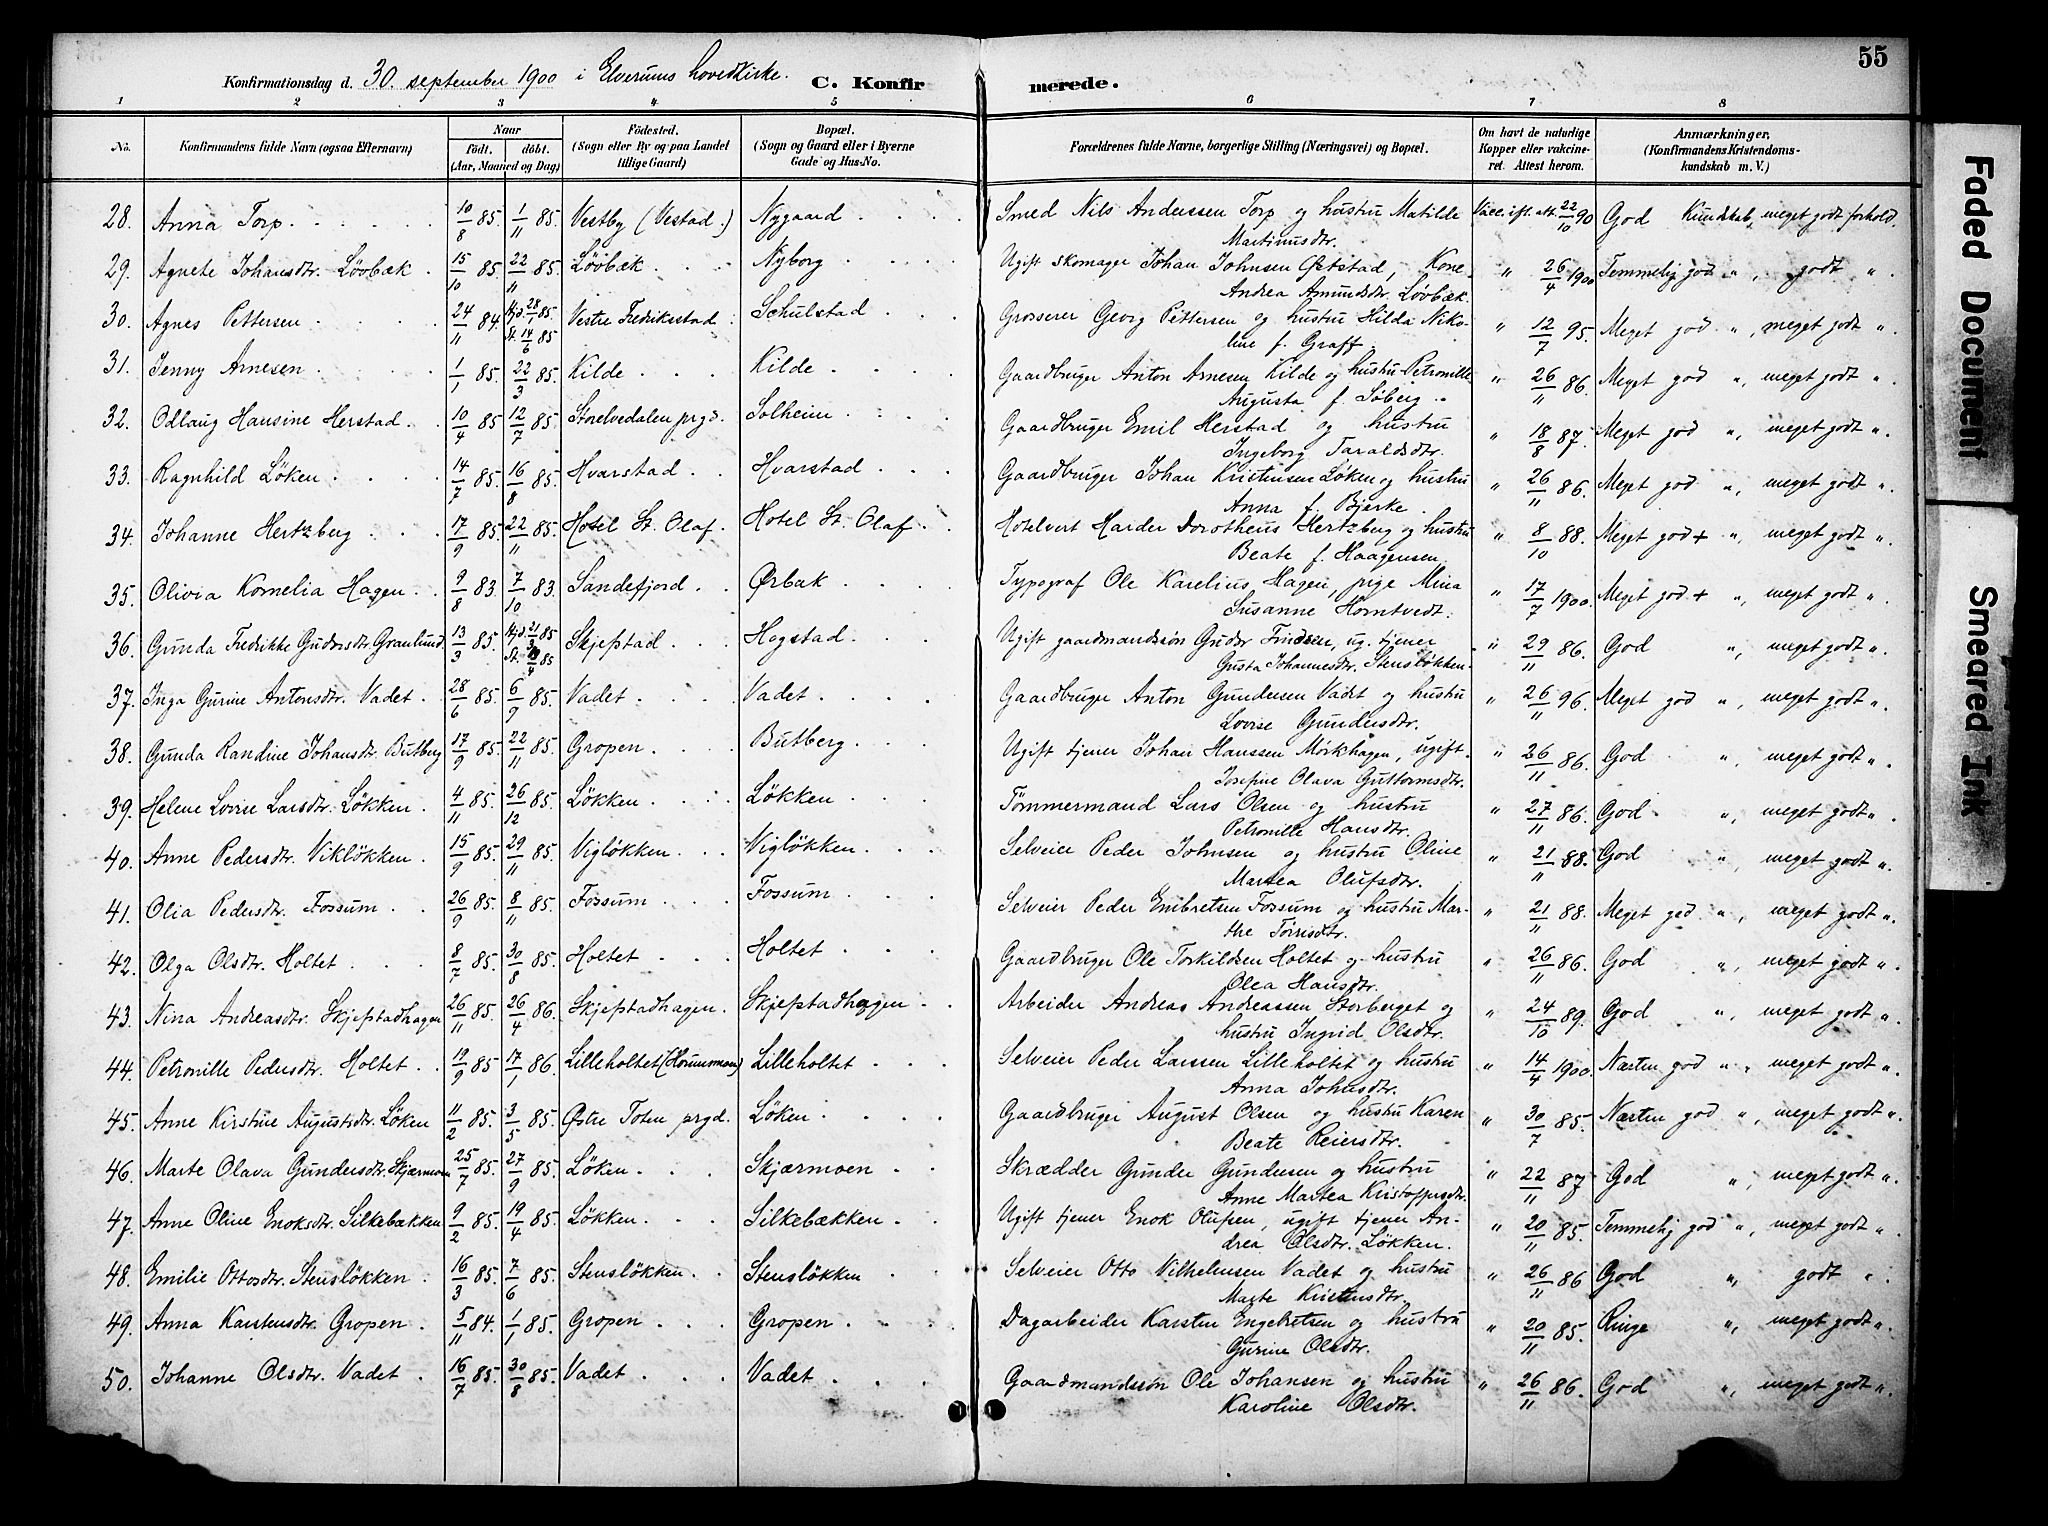 55
Konfirmationsdag d. 30. september 1900 i Elverums hovedkirke. C. Konfirmerede.
1 2 3 4 5 6 7 8
No. Konfirmandens fulde Navn (ogsaa Efternavn) Naar født. døbt. (Aar, Maaned og Dag) Fødested. (Sogn eller By og paa Landet tillige Gaard) Bopæl. (Sogn og Gaard eller i Byerne Gade og Hus-No.) Forældrenes fulde Navne, borgerlige Stilling (Næringsvei) og Bopæl. Om havt de naturlige Kopper eller vakcineret. Attest herom. Anmærkninger, (Konfirmandens Kristendomskundskab m. V.)
28. Anna Torp 10/8 85. 1/11 85. Vestby (Vestad.) Nygaard Smed Nils Anderssen Torp og hustru Matilde Vacc. ift. att. 22/10 90 God Kundskab, meget godt forhold.
Martinusdtr.
29. Agnete Johansdtr. Lövbæk 15/10 85. 22/11 85. Lövbæk Nyborg Ugift skomager Johan Johnsen Östad, Kone " 26/4 1900 Temmelig god ", godt ".
Andrea Amundsdtr. Lövbæk.
30. Agnes Pettersen 24/11 84. Hjd. 28/ 85. St. 14/6 85 Vestre Fredriksstad Schulstad Grosserer Georg Pettersen og hustru Hilda Niko- " 12/7 95. Meget god ", meget godt ".
line f. Graff.
31. Jenny Arnesen 1/1 85. 22/3 85. Kilde Kilde Gaardbruger Anton Arnesen Kilde og hustru Petronille " 26/11 86. Meget god ", meget godt ".
Augusta f. Söberg.
32. Odlaug Hansine Herstad 10/4 85 12/7 85. Storelvedalen prgd. Solheim Gaardbruger Emil Herstad og hustru " 18/8 87. Meget god ", meget godt ".
Ingeborg Taraldsdtr.
33. Ragnhild Löken 14/7 85. 16/8 85. Hvarstad Hvarstad Gaardbruger Johan Kristensen Löken og hustru " 26/11 86. Meget god ", meget godt ".
Anna f. Bjerke.
34. Johanne Hertzberg 17/9 85. 22/11 85. Hotel St. Olaf. Hotel St. Olaf Hotelvert Harder Dorotheus Hertzberg og hustru " 8/10 88. Meget god + ", meget godt ".
Beate f. Haagensen.
35. Olivia Kornelia Hagen 9/8 83. 7/10 83. Sandefjord Ørbæk Typograf Ole Karelius Hagen, pige Mina " 17/7 1900. Meget god + ", meget godt ".
Susanne Horntvedt.
36. Gunda Fredrikke Gudersdtr. Granlund 13/3 85. Hjd. 21/3 85 St. /4 85 Skjefstad Hagstad Ugift gaardmandssön Guder Findsen, ug. tjener " 29/11 86. God ", meget godt ".
Gusta Johannesdtr. Stenslökken.
37. Inga Gurine Antonsdtr. Vadet 28/6 85. 6/9 85. Vadet Vadet Gaardbruger Anton Gundersen Vadet og hustru " 26/11 96. Meget god ", meget godt ".
Lovise Gundersdtr.
38. Gunda Randine Johansdtr. Butberg 17/9 85. 22/11 85. Gropen Butberg Ugift tjener Johan Hanssen Mörkhagen, ugift " 26/11 86. God ", meget godt ".
Josefine Olava Guttormsdtr.
39. Helene Lovise Larsdtr. Lökken 4/11 85. 26/12 85. Lökken Lökken Tömmermand Lars Olsen og hustru " 27/11 86. God ", meget godt ".
Petronille Hansdtr.
40. Anne Pedersdtr. Viklökken 15/9 85. 29/11 85. Viglökken Viglökken Selveier Peder Johnsen og hustru Oline " 21/11 88. God ", meget godt ".
Martea Olufsdtr.
41. Olia Pedersdtr. Fossum 26/9 85. 8/11 85. Fossum Fossum Selveier Peder Embretsen Fossum og hustru Mar- " 21/11 88. Meget god ", meget godt ".
the Törrisdtr.
42. Olga Olsdtr. Holtet 8/7 85. 30/8 85. Holtet Holtet Gaardbruger Ole Torkildsen Holtet og hustru " 26/11 86. God ", meget godt ".
Olea Hansdtr.
43. Nina Andreasdtr. Skjefstadhagen 26/11 85. 26/4 86. Skjefstadhagen Skjefstadhagen Arbeider Andreas Andreassen Storberget og " 24/10 89. God ", meget godt ".
hustru Ingrid Olsdtr.
44. Petronille Pedersdtr. Holtet 19/9 85 17/1 86. Lilleholtet (Hornmoen) Lilleholtet Selveier Peder Larssen Lilleholtet og hustru " 14/4 1900. Næsten god ", meget godt ".
Anna Johnsdtr.
45. Anne Kirstine Augustsdtr. Löken 11/2 85. 3/5 85. Østre Toten prgd. Löken Gaardbruger August Olsen og hustru Karen " 30/7 85. Næsten god ", meget godt ".
Beate Reiersdtr.
46. Marte Olava Gundersdtr. Skjærmoen 25/7 85. 27/9 85. Löken Skjærmoen Skrædder Gunder Gundersen og hustru " 22/11 87 God ", meget godt ".
Anne Martea Kristoffersdtr.
47. Anne Oline Enoksdtr. Silkebækken 9/2 85. 19/4 85. Lökken Silkebækken Ugift tjener Enok Olufsen, ugift tjener An- " 20/11 85. Temmelig god ", meget godt ".
drea Olsdtr. Lökken.
48. Emilie Ottosdtr. Stenslökken 16/3 85. 7/6 85. Stenslökken Stenslökken Selveier Otto Vilhelmsen Vadet og hustru " 26/11 86 God ", godt ".
Marte Kristensdtr.
49. Anna Karstensdtr. Gropen 5/11 84. 1/1 85. Gropen Gropen Dagarbeider Karsten Engebretsen og hustru " 20/11 85. Ringe ", meget godt ".
Gurine Olsdtr.
50. Johanne Olsdtr. Vadet 16/7 85. 30/8 85. Vadet Vadet Gaardmandssön Ole Johansen og hustru " 26/11 86. God ", meget godt ".
Karoline Olsdtr.
Faded Document
Smeared Ink